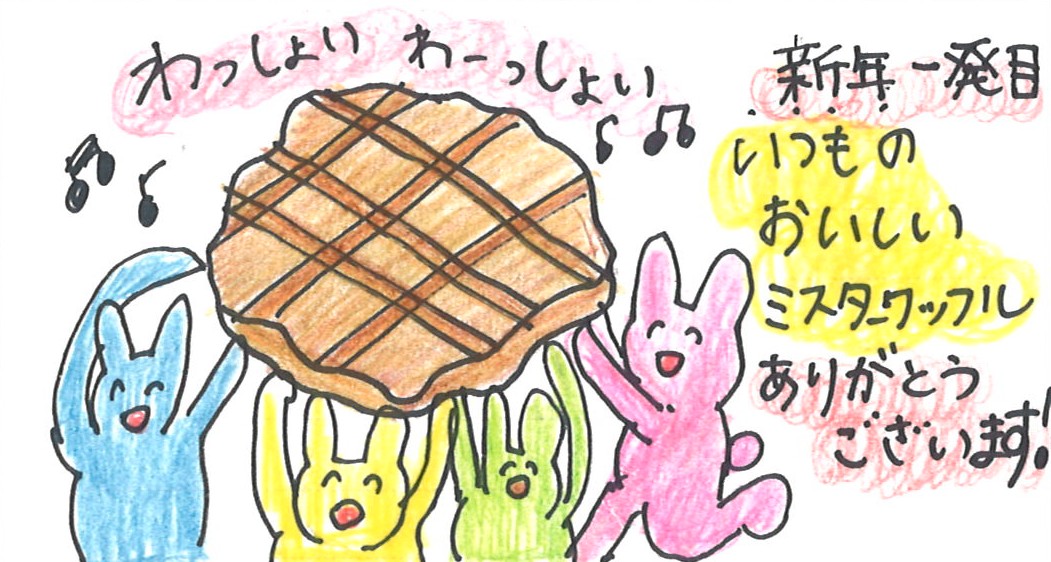 わっしょい わーっしょい
新年一発目
いつもの
おいしい
ミスターワッフル
ありがとう
ございます!